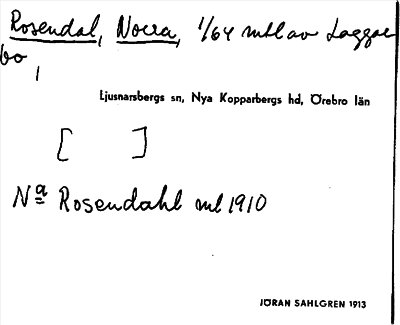 Rosendal, Norra, 1/64 mtl av Laggar
bo
Ljusnarsbergs sn, Nya Kopparbergs hd, Örebro län
[ ]
Na Rosendahl ml 1910
JÖRAN SAHLGREN 1913